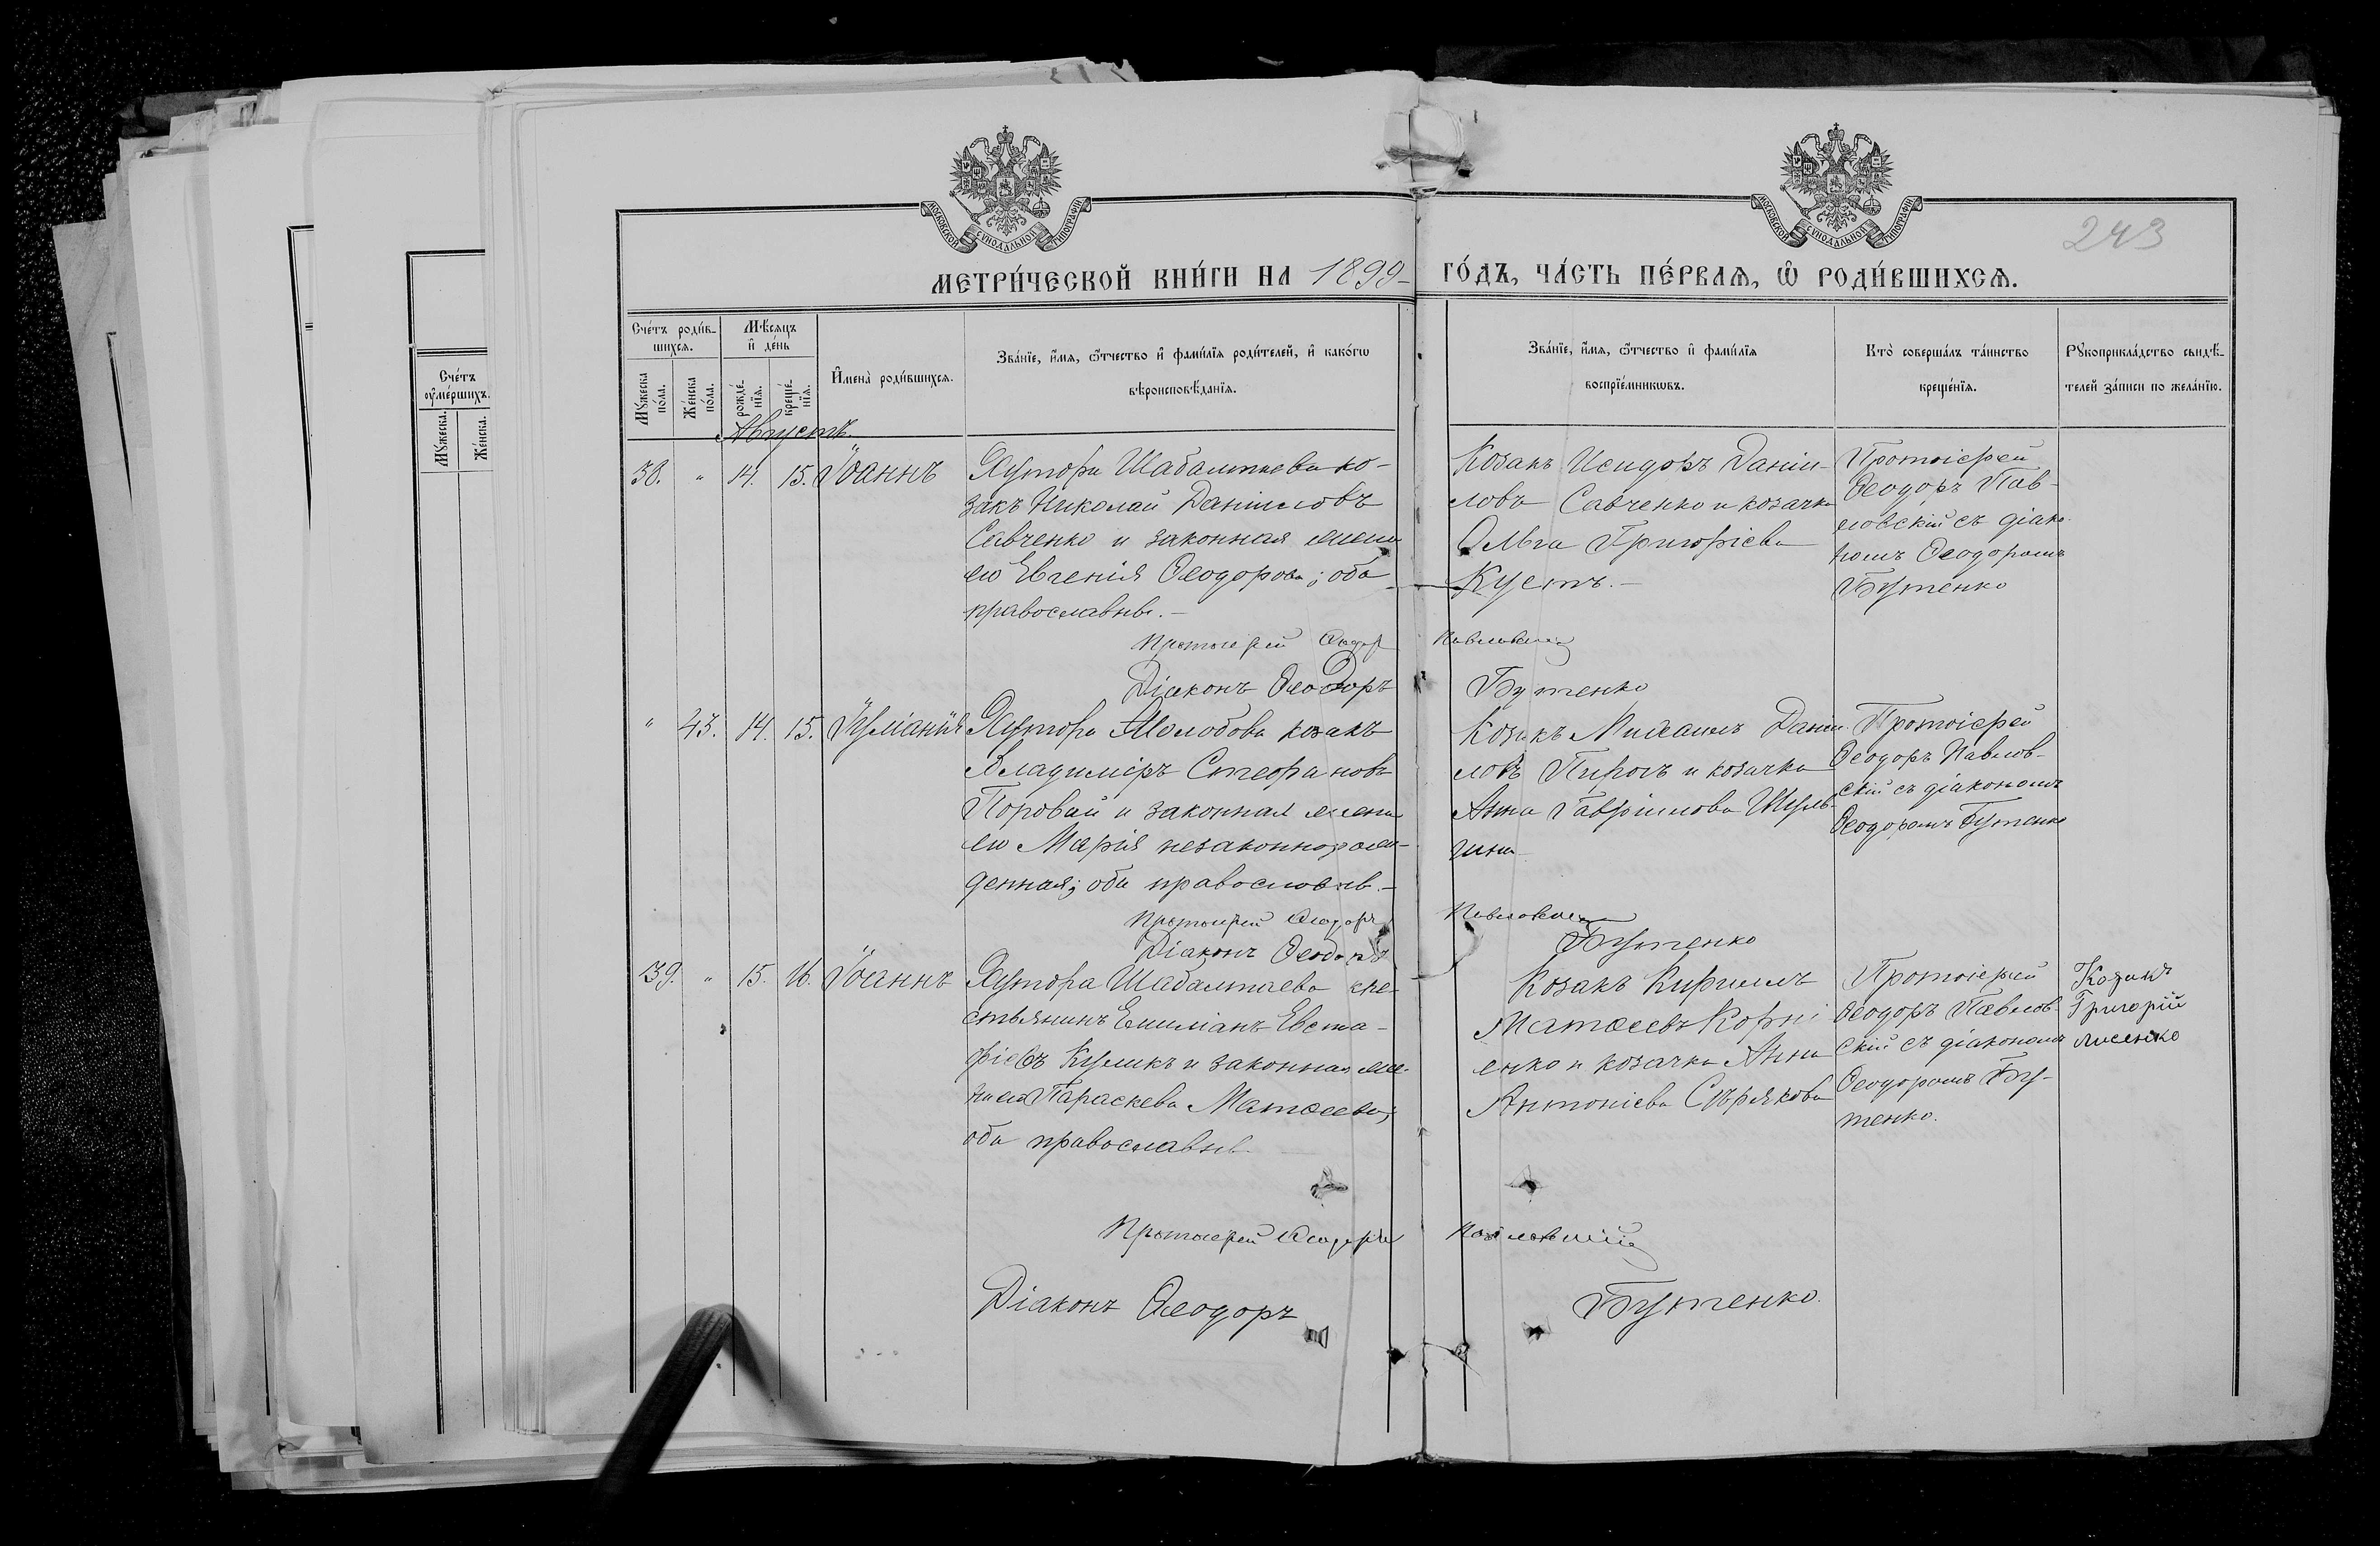 МОСКОВСКОЙ СѴНОДАЛЬНОЙ ТИПОГРАФІИ
МОСКОВСКОЙ СѴНОДАЛЬНОЙ ТИПОГРАФІИ
243
МЕТРИ́ЧЕСКОЙ КНИ́ГИ НА 1899 ГО́ДЪ, ЧА́СТЬ ПЕ́РВАѦ, Ѡ҆ РОДИ́ВШИХСѦ.
Сче́тъ роди́в-
шихся.
Мѣ́сяцъ
и҆ де́нь
Мꙋ́жеска
по́ла.
Же́нска
по́ла.
рожде́-
нїя.
креще́-
нїя.
И҆мена̀ роди́вшихся.
Зва́нїе, и҆́мя, ѻ҆́тчество и҆ фамі́лїя роди́телей, и҆ како́гѡ
вѣроисповѣ́данїя.
Зва́нїе, и҆́мя, ѻ҆́тчество и҆ фамі́лїя
воспрїе́мникѡвъ.
Кто̀ соверша́лъ та́инство
креще́нїя.
Рꙋкоприкла́дство свидѣ́-
телей за́писи по жела́нїю.
Сче́тъ
ᲂу҆ме́ршихъ.
Мꙋ́жеска.
Же́нска.
Августъ.
38. " 14. 15. Іоаннъ
Хутора Шабалтаева ко-
закъ Николай Даніиловъ
Савченко и законная жена
его Евгенія Ѳеодорова; оба
православные.-
Козакъ Исидоръ Даніи-
ловъ Савченко и козачка
Ольга Григоріева
Кустъ.-
Протоіерей
Ѳеодоръ Пав-
ловскій съ діако-
номъ Ѳеодоромъ
Бутенко
Протоіерей Ѳеодоръ Павловскій
Діаконъ Ѳеодоръ Бутенко
" 43. 14. 15. Іуліанія
Хутора Молобова козакъ
Владиміръ Стефановъ
Поровай и законная жена
его Марія незаконнорож-
денная; оба православные.-
Козакъ Михаилъ Даніи-
ловъ Пирогъ и козачка
Анна Гавріилова Шуль-
гина
Протоіерей
Ѳеодоръ Павлов-
скій съ діакономъ
Ѳеодоромъ Бутенко
Протоіерей Ѳеодоръ Павловскій
Діаконъ Ѳеодоръ Бутенко
39. " 15. 16. Іоаннъ
Хутора Шабалтаева кре-
стьянинъ Емиліанъ Евста-
фіевъ Куликъ и законная же-
на его Параскева Матѳеева;
оба православные
Козакъ Кириллъ
Матѳеевъ Корні-
енко и козачка Анна
Антоніева Сѣрякова
Протоіерей
Ѳеодоръ Павлов-
скій съ діакономъ
Ѳеодоромъ Бу-
тенко.
Козакъ
Григорій
Лисенко
Протоіерей Ѳеодоръ Павловскій
Діаконъ Ѳеодоръ Бутенко.